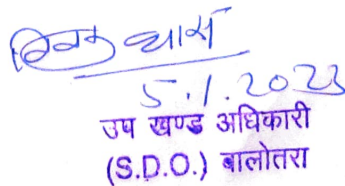 5.1.2023
उप खण्ड अधिकारी
(S.D.O.) बालोतरा